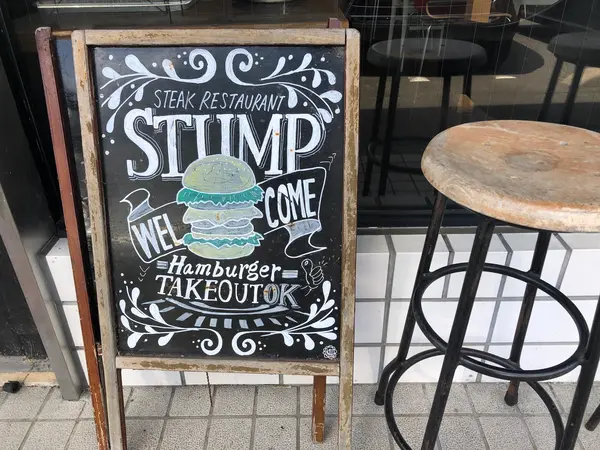 STEAK RESTAURANT
STUMP
WELCOME
Hamburger
TAKEOUT OK